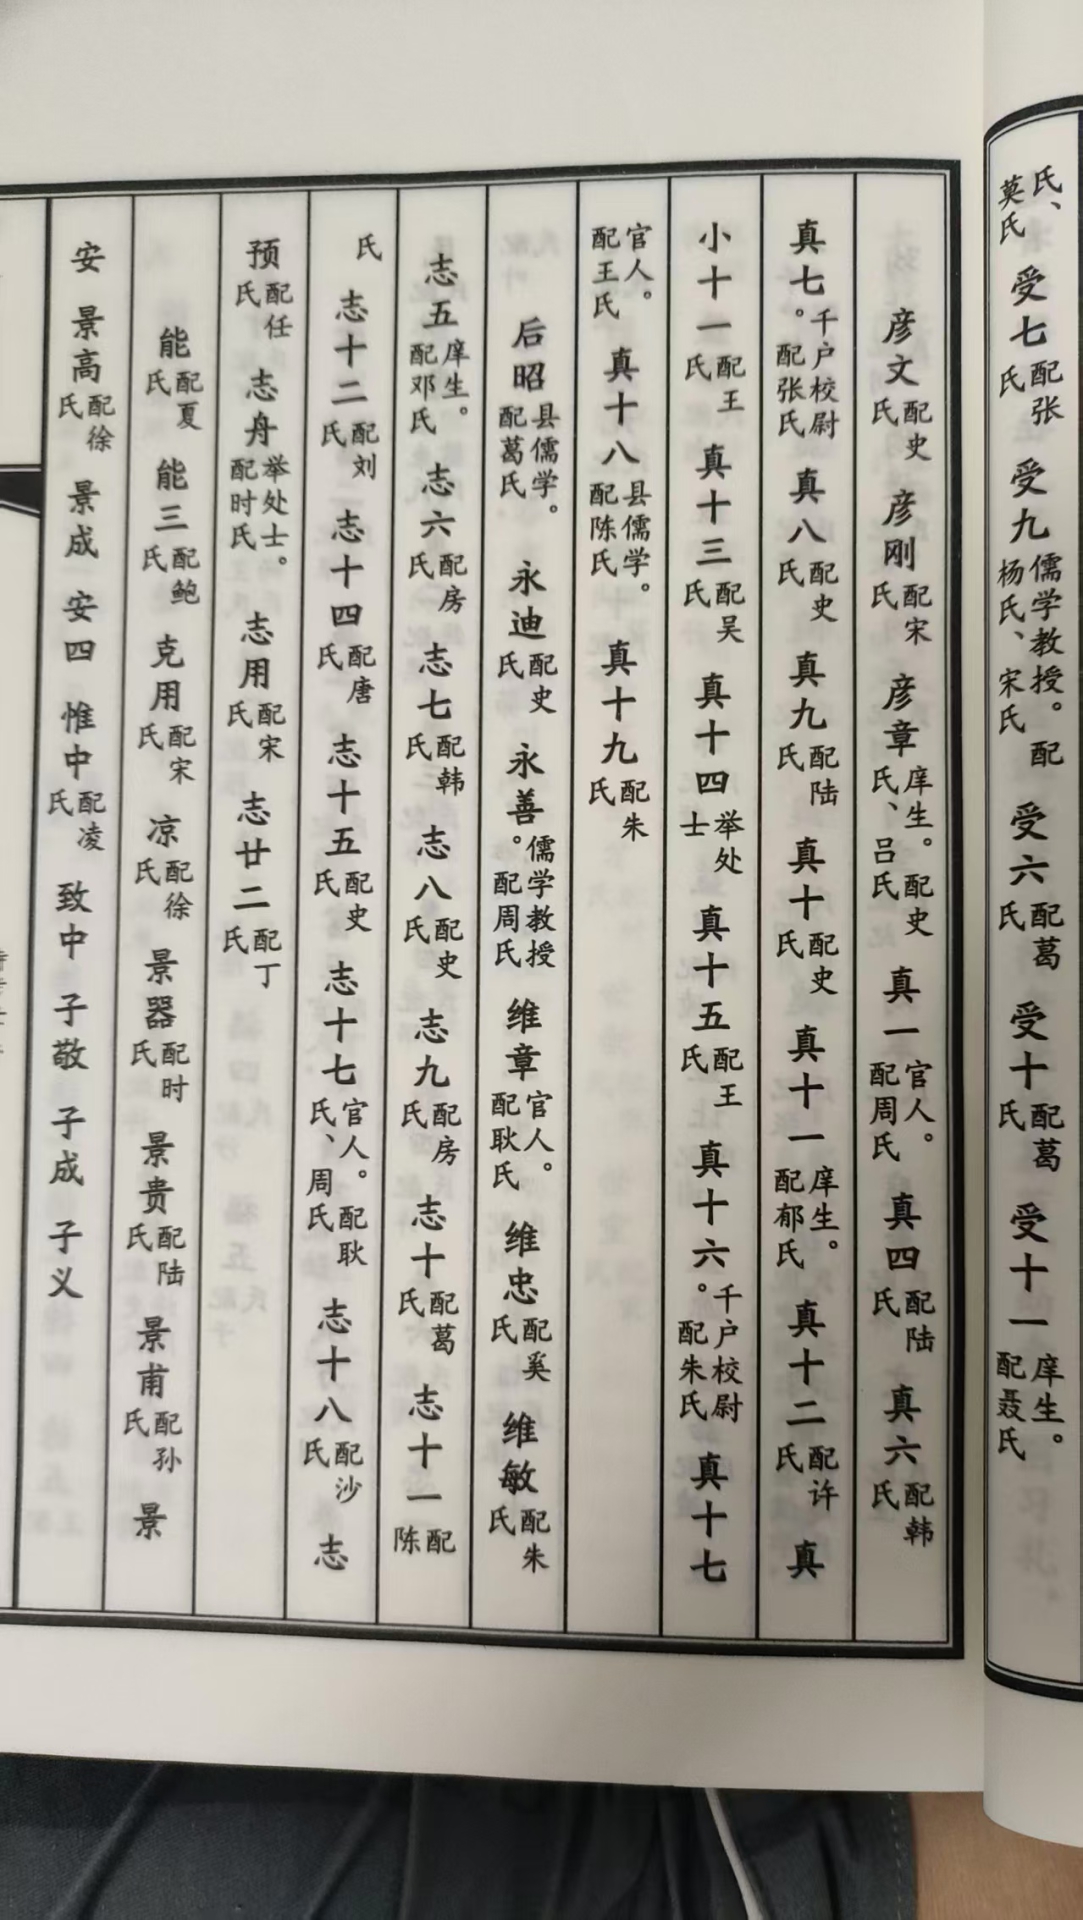 氏、莫氏 受七配张氏 受九儒学教授。配杨氏、宋氏 受六配葛氏 受十配葛氏 受十一庠生。配聂氏
彦文配史氏 彦刚配宋氏 彦章庠生。配史氏、吕氏 真一官人。配周氏 真四配陆氏 真六配韩氏
真七千户校尉。配张氏 真八配史氏 真九配陆氏 真十配史氏 真十一庠生。配郁氏 真十二配许氏 真
小十一配王氏 真十三配吴氏 真十四举处士 真十五配王氏 真十六千户校尉。配朱氏 真十七
官人。配王氏 真十八县儒学。配陈氏 真十九配朱氏
后昭县儒学。配葛氏 永迪配史氏 永善儒学教授。配周氏 维章官人。配耿氏 维忠配奚氏 维敏配朱氏
志五庠生。配邓氏 志六配房氏 志七配韩氏 志八配史氏 志九配房氏 志十配葛氏 志十一配陈
氏 志十二配刘氏 志十四配唐氏 志十五配史氏 志十七官人。配耿氏、周氏 志十八配沙氏 志
预配任氏 志舟举处士。配时氏 志用配宋氏 志廿二配丁氏
能配夏氏 能三配鲍氏 克用配宋氏 凉配徐氏 景器配时氏 景贵配陆氏 景甫配孙氏 景
安 景高配徐氏 景成 安四 惟中配凌氏 致中 子敬 子成 子义